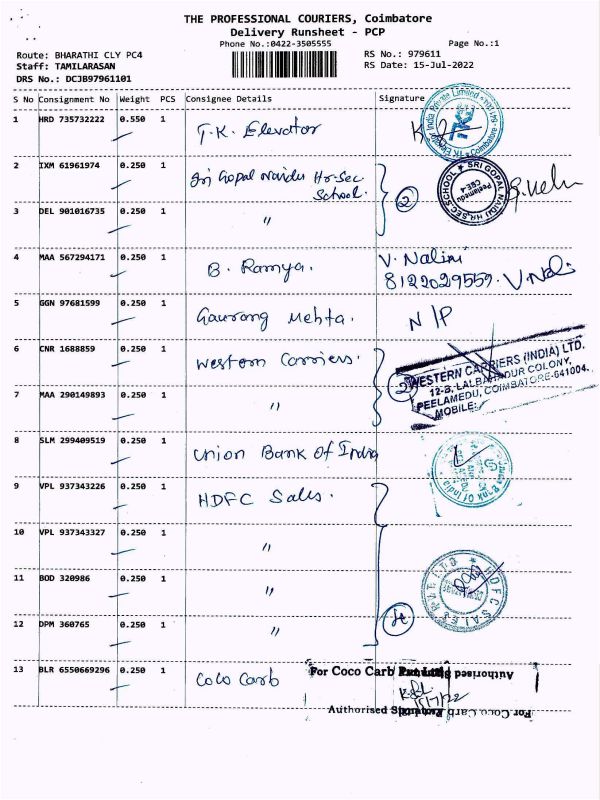 THE PROFESSIONAL COURIERS, Coimbatore
Delivery Runsheet - PCP
Phone No.:0422-3505555
Page No.:1
Route: BHARATHI CLY PC4
RS No.: 979611
Staff: TAMILARASAN
RS Date: 15-Jul-2022
DRS No.: DCJB97961101
S No Consignment No Weight PCS Consignee Details Signature
1 HRD 735732222 0.550 1 T.K. Elevator
2 IXM 61961974 0.250 1 Sri Gopal Naidu Hr.Sec. School. 2
SRI GOPAL NAIDU HR.SEC.SCHOOL
Peelamedu
3 DEL 901016735 0.250 1 "
4 MAA 567294171 0.250 1 B. Ramya. V. Nalini
8122029559. V.Nali
5 GGN 97681599 0.250 1 Gaurang Mehta. N/P
6 CNR 1688859 0.250 1 Western Carriers. 2
WESTERN CARRIERS (INDIA) LTD.
12-B, LALBAHADUR COLONY,
PEELAMEDU, COIMBATORE-641004.
MOBILE:
7 MAA 290149893 0.250 1 "
8 SLM 299409519 0.250 1 Union Bank Of India
9 VPL 937343226 0.250 1 HDFC Sales.
10 VPL 937343327 0.250 1 "
11 BOD 320986 0.250 1 "
HDFC SALES PVT. LTD
12 DPM 360765 0.250 1 "
13 BLR 6550669296 0.250 1 Coco Carb
For Coco Carb
15/7/22
Authorised